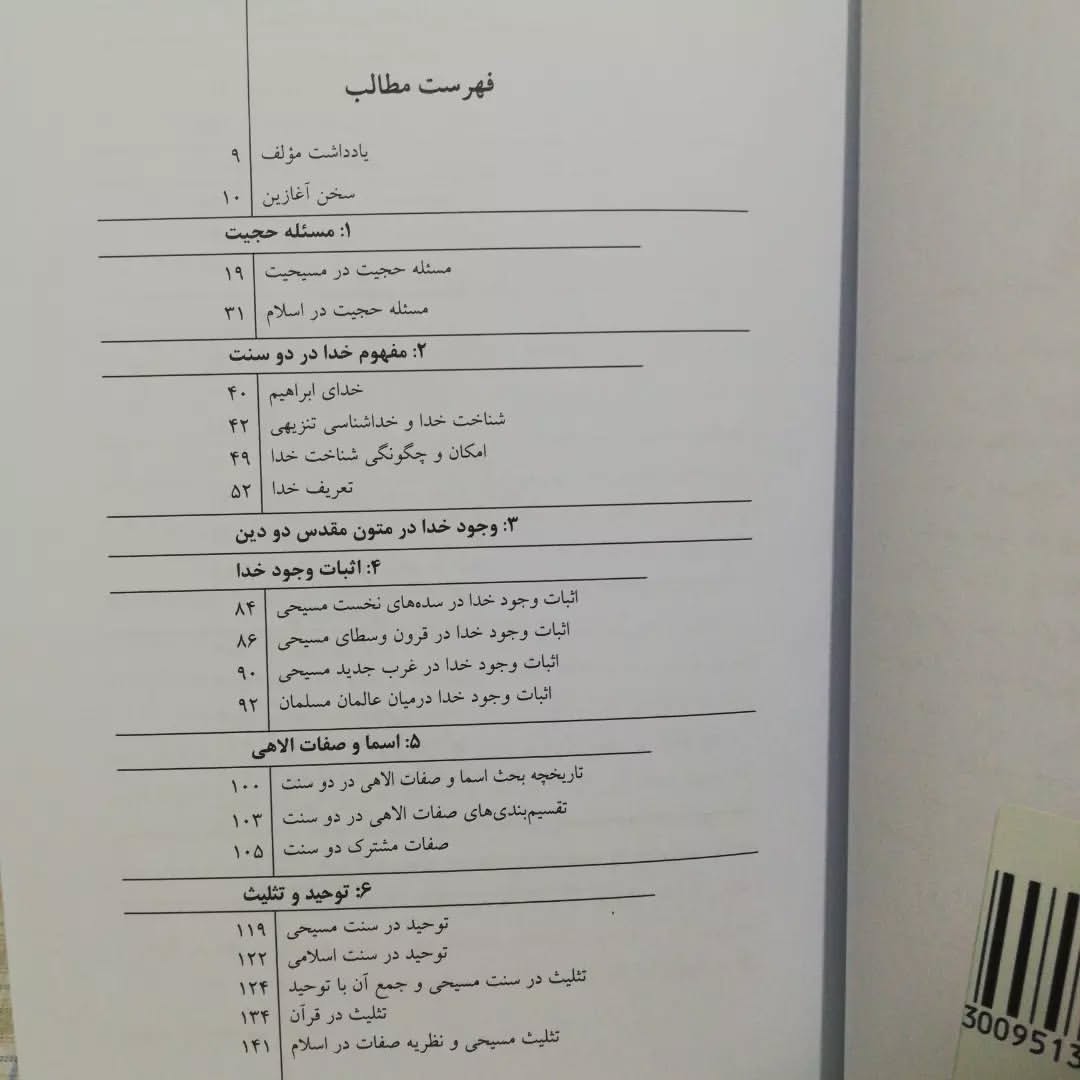 فهرست مطالب
یادداشت مؤلف ۹
سخن آغازین ۱۰
۱: مسئله حجیت
مسئله حجیت در مسیحیت ۱۹
مسئله حجیت در اسلام ۳۱
۲: مفهوم خدا در دو سنت
خدای ابراهیم ۴۰
شناخت خدا و خداشناسی تنزیهی ۴۲
امکان و چگونگی شناخت خدا ۴۹
تعریف خدا ۵۲
۳: وجود خدا در متون مقدس دو دین
۴: اثبات وجود خدا
اثبات وجود خدا در سده‌های نخست مسیحی ۸۴
اثبات وجود خدا در قرون وسطای مسیحی ۸۶
اثبات وجود خدا در غرب جدید مسیحی ۹۰
اثبات وجود خدا درمیان عالمان مسلمان ۹۲
۵: اسما و صفات الاهی
تاریخچه بحث اسما و صفات الاهی در دو سنت ۱۰۰
تقسیم‌بندی‌های صفات الاهی در دو سنت ۱۰۳
صفات مشترک دو سنت ۱۰۵
۶: توحید و تثلیث
توحید در سنت مسیحی ۱۱۹
توحید در سنت اسلامی ۱۲۲
تثلیث در سنت مسیحی و جمع آن با توحید ۱۲۴
تثلیث در قرآن ۱۳۴
تثلیث مسیحی و نظریه صفات در اسلام ۱۴۱
3009513